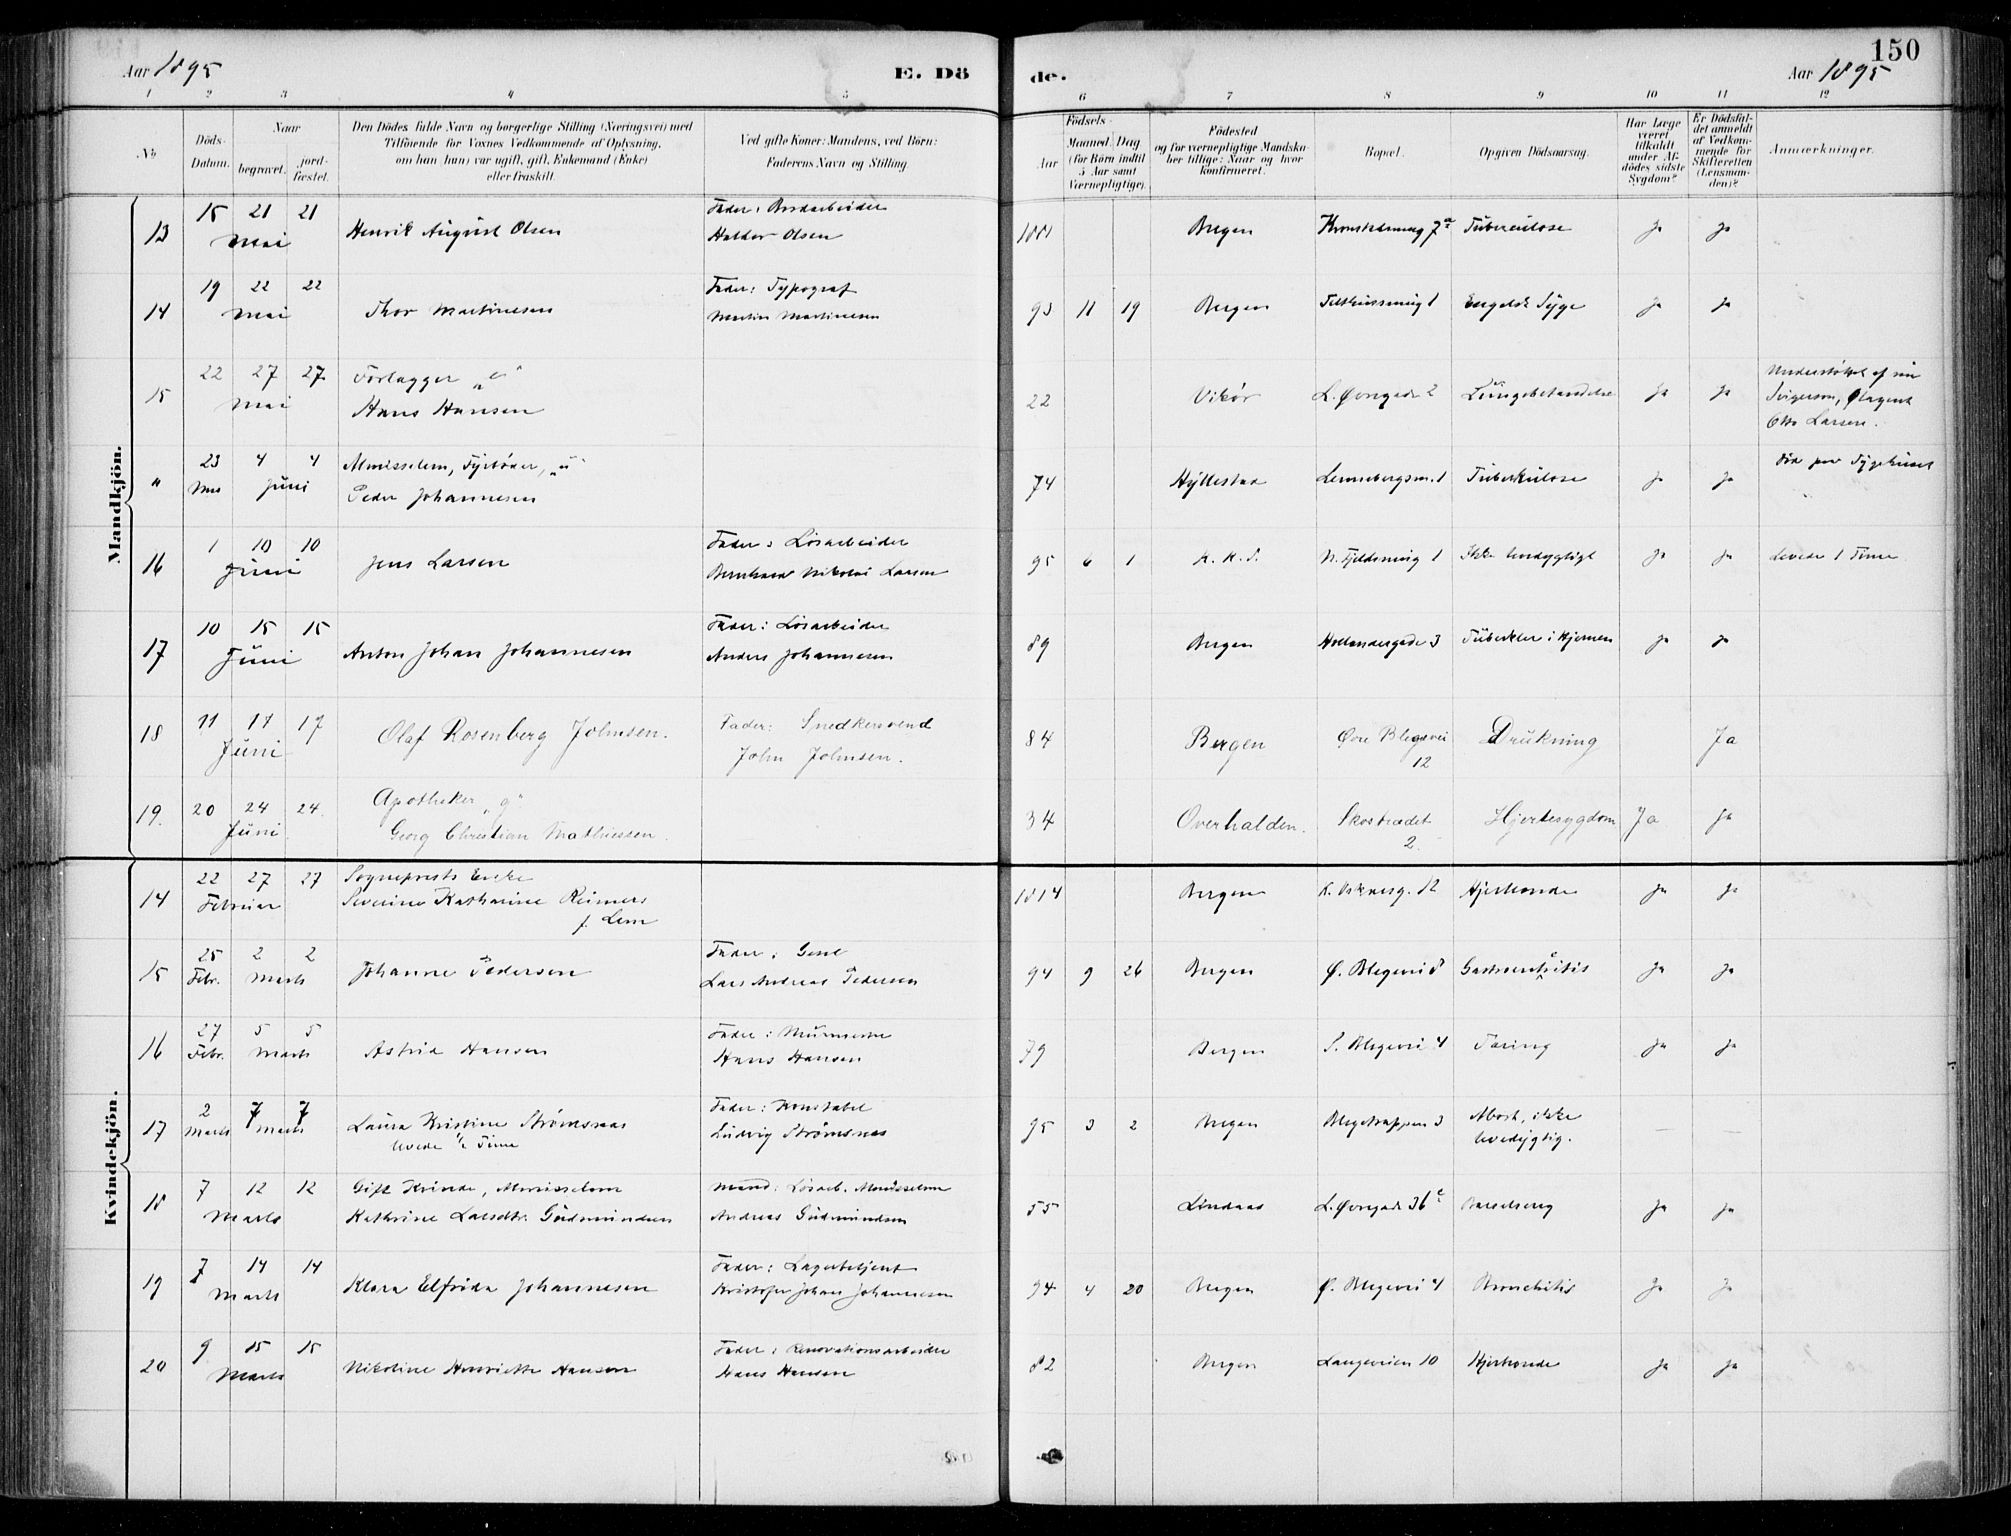 Aar 1895
E. Dö
de.
Aar 1895
150
1 2 3 4 5 6 7 8 9 10 11 12
No
Döds-Datum.
Naar
begravet. jord-fæstet.
Den Dödes fulde Navn og borgerlige Stilling (Næringsvei) med
Tilföiende for Voxnes Vedkommende af Oplysning,
om han (hun) var ugift, gift, Enkemand (Enke)
eller fraskilt.
Ved gifte Koner: Mandens, ved Börn:
Faderens Navn og Stilling
Födsels-
Aar Maaned Dag
(for Börn indtil
5 Aar samt
Værnepligtige).
Födested
og for værnepligtige Mandska-
ber tillige: Naar og hvor
konfirmeret.
Bopæl.
Opgiven Dödsaarsag.
Har Læge
været
tilkaldt
under Af-
dödes sidste
Sygdom?
Er Dödsfal-
det anmeldt
af Vedkom-
mende for
Skifteretten
(Lensman-
den)?
Anmærkninger.
Mandkjön.
13 15 21 21 Mai Henrik August Olsen Fader: Bordarbeider
Haldor Olsen 1881 Bergen 7a Tuberculose Ja Ja
14 19 22 22 Mai Thor Martinesen Fader: Typograf
Martin Martinesen 93 11 19 Bergen Engelsk Syge Ja Ja
15 22 27 27 Mai Forlagger "e"
Hans Hansen 22 Vikør L. Øvregade 2 Lungebetændelse Ja Ja Understøttet af sin
Svigersøn, Ølagent
Otto Larsen.
" 23 Mai 4 4 Juni Almisselem, Fyrbøder, "u"
Peder Johannesen 74 Hyllestad Lemnebergsm. 1 Tuberkulose Ja Ja Død paa Sygehuset
16 1 10 10 Juni Jens Larsen Fader: Løsarbeider
Bernhard Nikolai Larsen 95 6 1 K. K. S. N. Fjeldsmug 1 Ikke levedygtigt Ja Ja Levede 1 Time
17 10 15 15 Juni Anton Johan Johannesen Fader: Løsarbeider
Anders Johannesen 89 Bergen Hollændergade 3 Tuberkler i Hjernen Ja Ja
18 11 17 17 Juni Olaf Rosenberg Johnsen. Fader: Snedkersvend
John Johnsen. 84 Bergen Øvre Blegevei
12 Drukning Ja
19. 20 24 24. Juni Apotheker "g".
Georg Christian Mathiessen. 34 Overhalden. Skostrædet
2. Hjertesygdom Ja Ja
Kvindekjön.
14 22 27 27 Februar Sogneprests Enke
Severine Katharine Reimers
f. Lem 1814 Bergen 12 Hjerteonde Ja Ja
15 25 Febr. 2 2 Marts Johanne Pedersen Fader:
Lars Andreas Pedersen 94 9 26 Bergen Ø. Blegevei 8 Gastroenteritis Ja Ja
16 27 Febr. 5 5 Marts Astrid Hansen Fader: Murmester
Hans Hansen 79 Bergen S. Blegevei 4 Tæring Ja Ja
17 2 Marts 7 7 Marts Laura Kristine Strømsnes
levede ½ Time Fader: Konstabel
Ludvig Strømsnes 95 3 2 Bergen Blegetrappen 3 Abort, ikke
levedygtig. — —
18 7 12 12 Marts Gift Kvinde, Almisselem
Kathrine Larsdtr. Gudmundsen Mand: Løsarb. Almisselem
Andreas Gudmundsen 55 Lindaas L. Øvregade 36 Barselseng Ja Ja
19 7 14 14 Marts Klara Elfrida Johannesen Fader: Lagerbetjent
Kristofer Johan Johannesen 94 4 20 Bergen Ø. Blegevei 4 Bronchitis Ja Ja
20 9 15 15 Marts Nikoline Henriette Hansen Fader: Renovationsarbeider
Hans Hansen 82 Bergen Langeveien 10 Hjerteonde Ja Ja